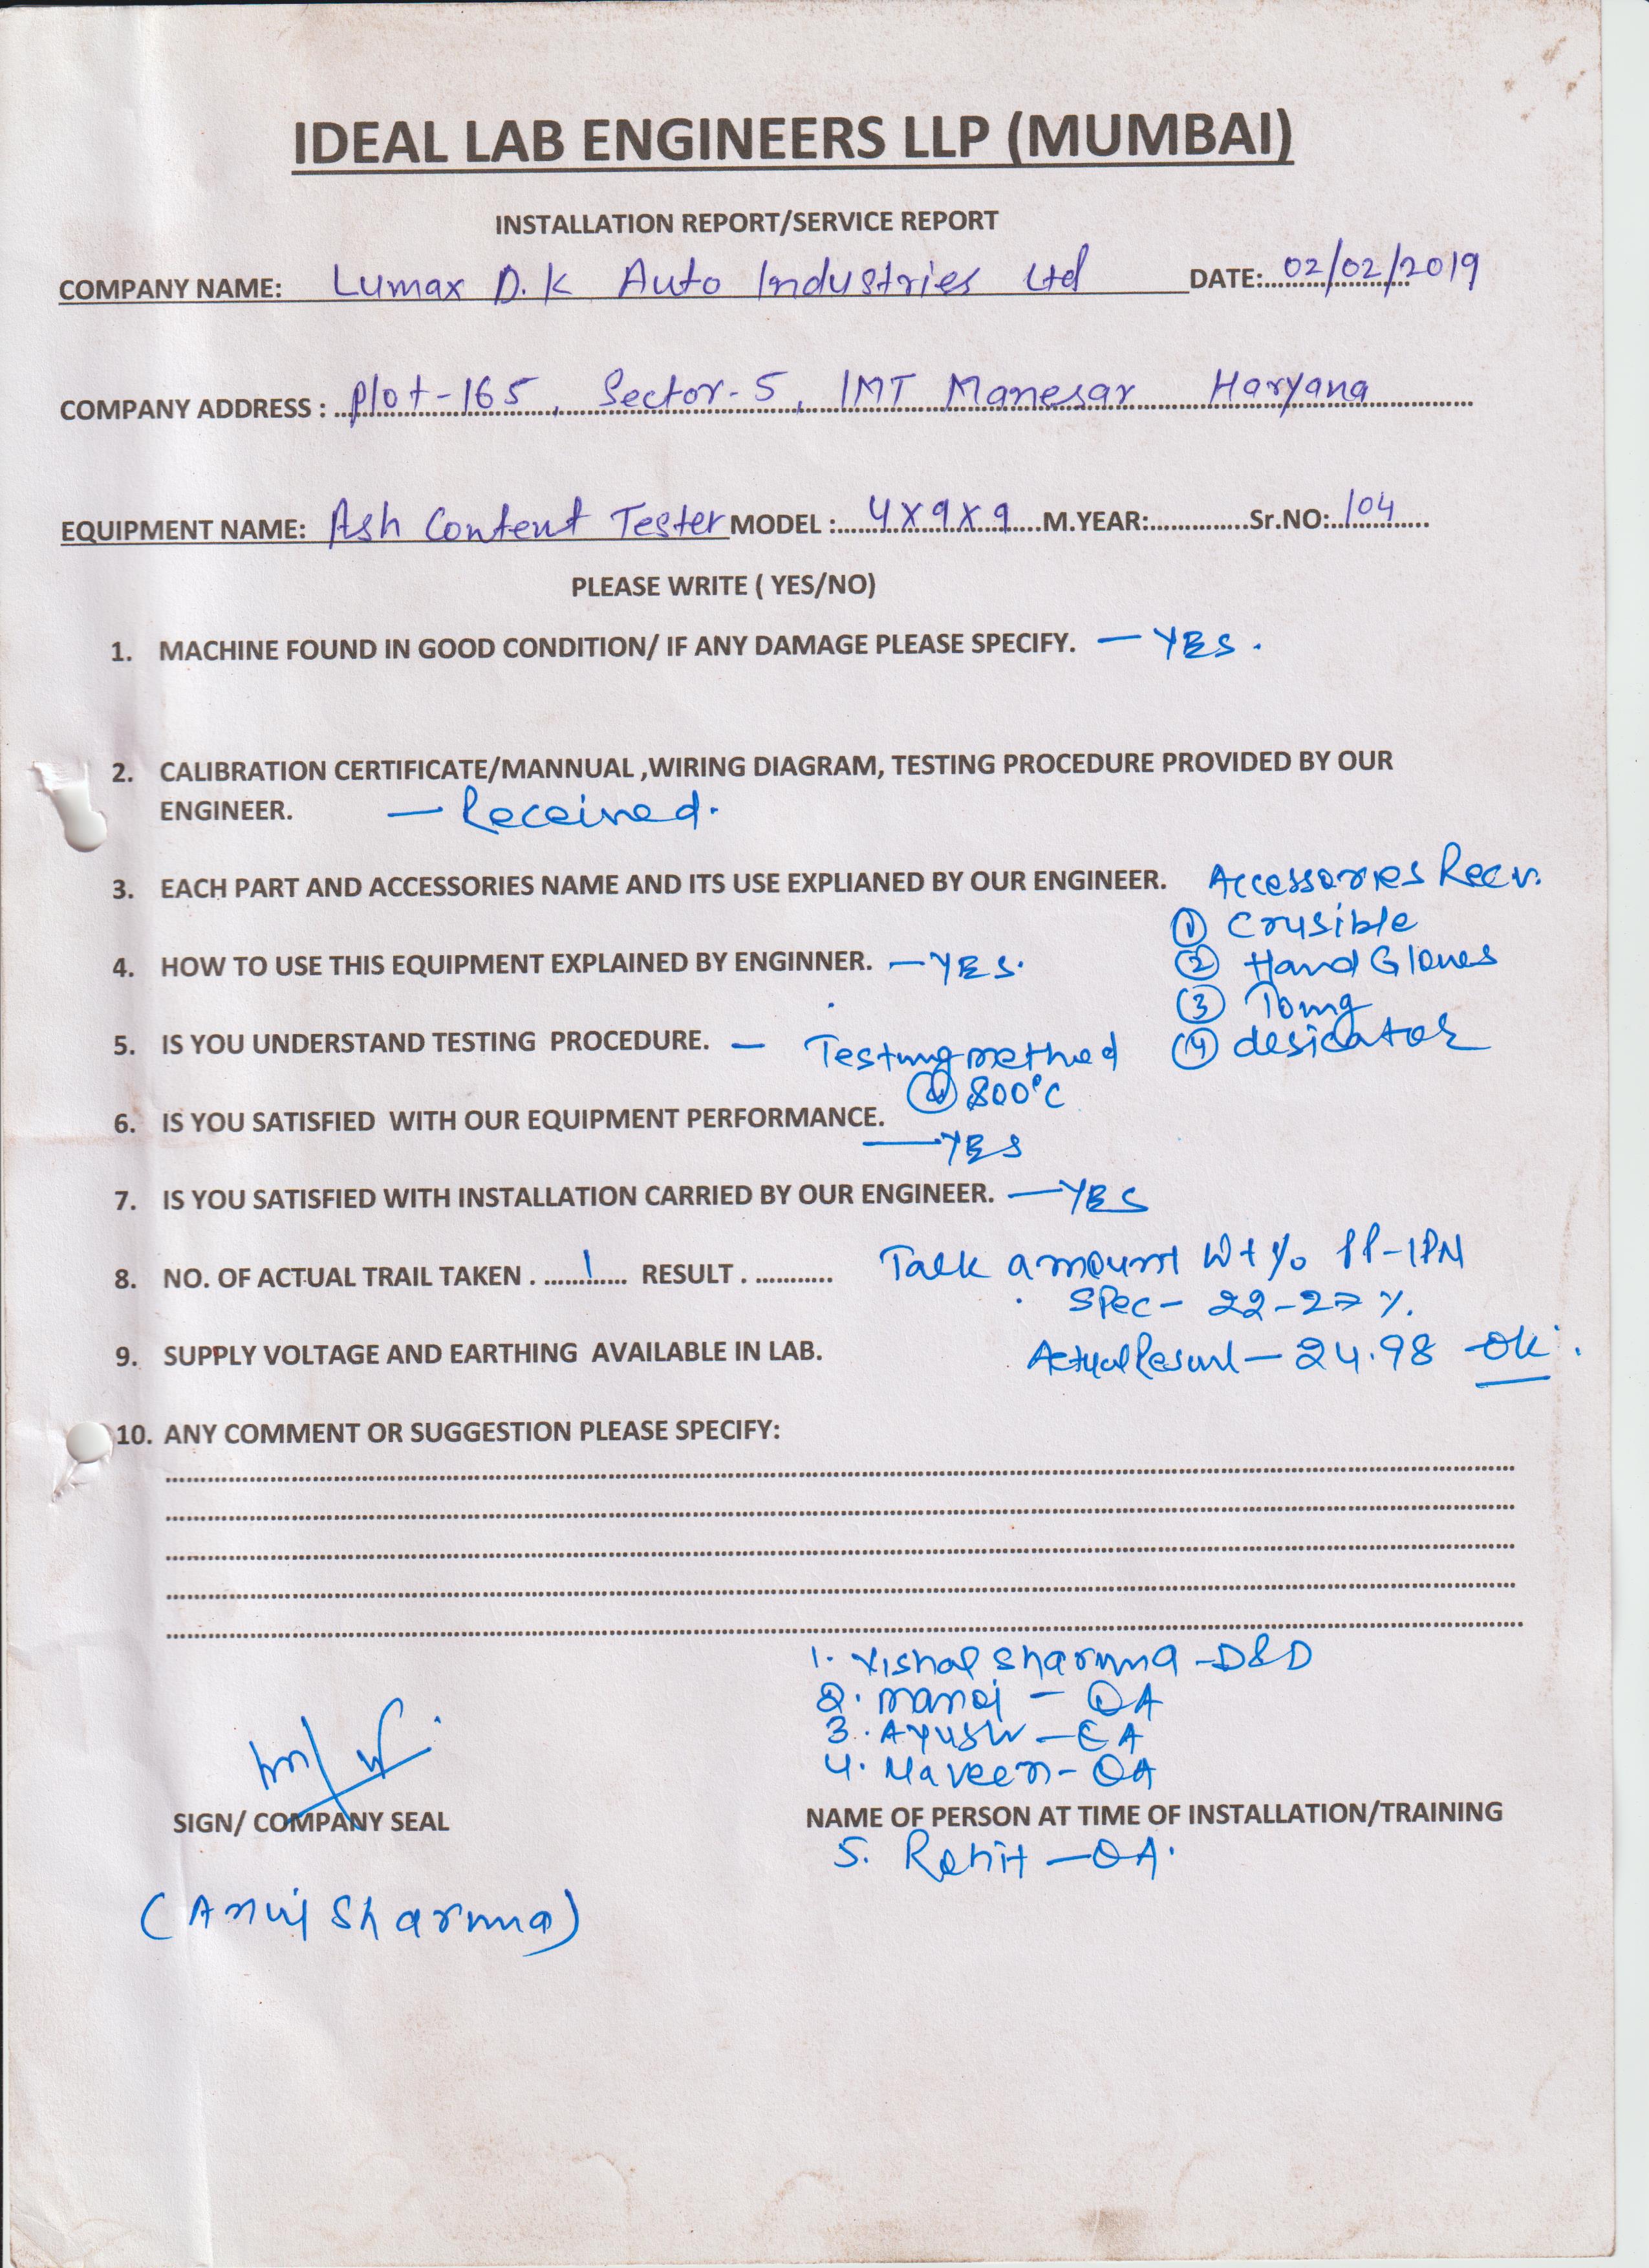 IDEAL LAB ENGINEERS LLP (MUMBAI)
INSTALLATION REPORT/SERVICE REPORT
COMPANY NAME: Lumax D.K Auto Industries Ltd DATE: 02/02/2019
COMPANY ADDRESS : Plot-165, Sector-5, IMT Manesar Haryana
EQUIPMENT NAME: Ash Content Tester MODEL : 4X9X9 M.YEAR:.............. Sr.NO: 104
PLEASE WRITE ( YES/NO)
1. MACHINE FOUND IN GOOD CONDITION/ IF ANY DAMAGE PLEASE SPECIFY. — YES.
2. CALIBRATION CERTIFICATE/MANNUAL ,WIRING DIAGRAM, TESTING PROCEDURE PROVIDED BY OUR
ENGINEER. — Received.
3. EACH PART AND ACCESSORIES NAME AND ITS USE EXPLIANED BY OUR ENGINEER. Accessories Recv.
① Crusible
4. HOW TO USE THIS EQUIPMENT EXPLAINED BY ENGINNER. — YES. ② Hand Gloves
③ Tong
5. IS YOU UNDERSTAND TESTING PROCEDURE. — Testing method ④ desicator
@ 800°C
6. IS YOU SATISFIED WITH OUR EQUIPMENT PERFORMANCE.
— YES
7. IS YOU SATISFIED WITH INSTALLATION CARRIED BY OUR ENGINEER. — YES
8. NO. OF ACTUAL TRAIL TAKEN . ....1.... RESULT . ........... Talk amount Wt %
Spec - 22-27 %.
9. SUPPLY VOLTAGE AND EARTHING AVAILABLE IN LAB. Actual Result - 24.98 OK.
10. ANY COMMENT OR SUGGESTION PLEASE SPECIFY:
1. Vishal Sharma - D&D
2. Manoj - QA
3. Ayush -
4. Naveen - QA
SIGN/ COMPANY SEAL NAME OF PERSON AT TIME OF INSTALLATION/TRAINING
5. Rohit - QA.
(Anuj Sharma)